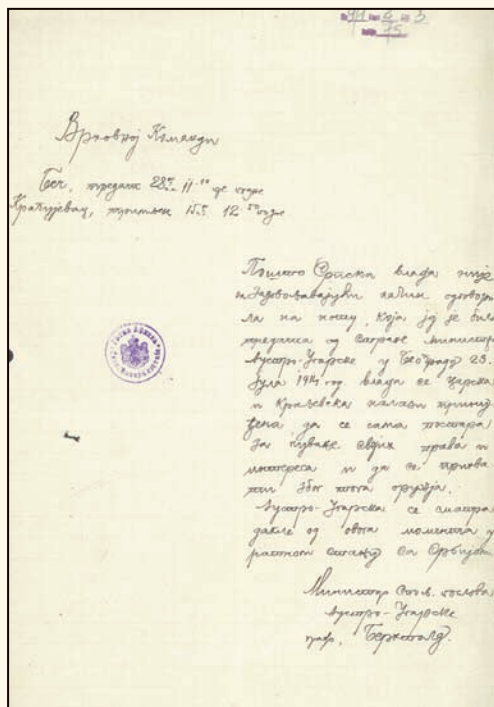 Врховној Команди
Беч, предата 28 11.10 пре подне
Крагујевац, примљена 15.5 12.50 подне
Пошто Српска влада није
на задовољавајући начин одговори-
ла на ноту, која јој је била
предата од стране министра
Аустро-Угарске у Београду 23.
Јула 1914 год. влада се царска
и Краљевска налази принуђ-
ена да се сама постара
за чување својих права и
интереса и да се прихва-
ти због тога оружја.
Аустро-Угарска се сматра
дакле од овога момента у
ратном стању са Србијом
Министар Спољ. послова
Аустро-Угарске
гроф, Берхтолд.